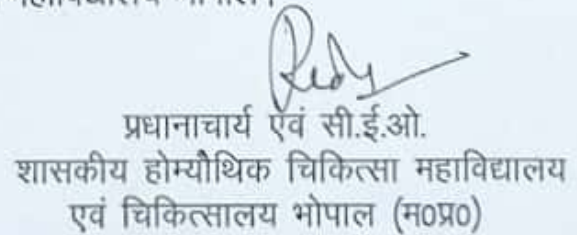 प्रधानाचार्य एवं सी.ई.ओ.
शासकीय होम्यौथिक चिकित्सा महाविद्यालय
एवं चिकित्सालय भोपाल (म0प्र0)